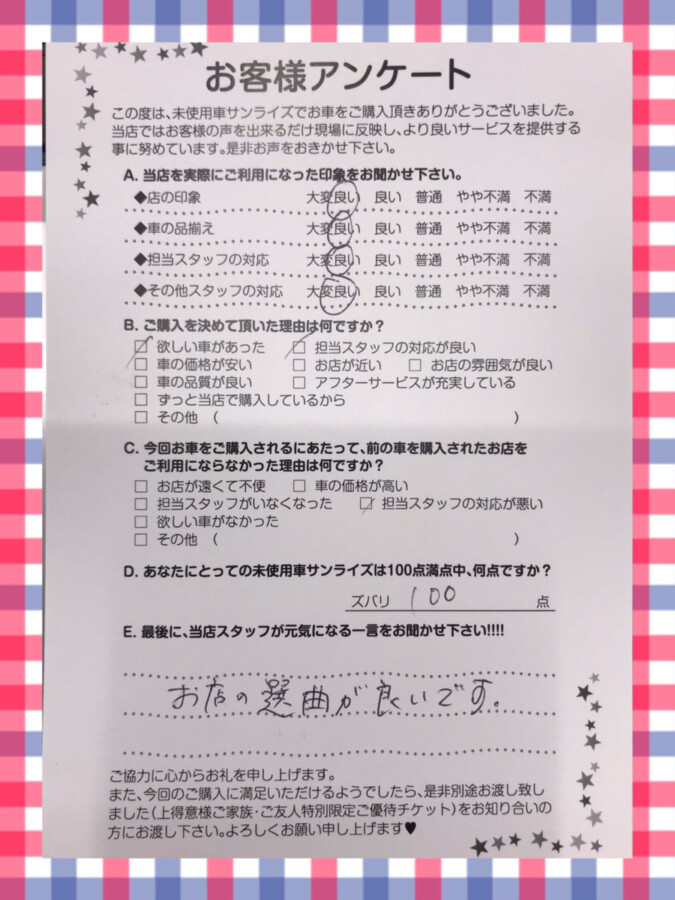 お客様アンケート
この度は、未使用車サンライズでお車をご購入頂きありがとうございました。
当店ではお客様の声を出来るだけ現場に反映し、より良いサービスを提供する
事に努めています。是非お声をおきかせ下さい。
A. 当店を実際にご利用になった印象をお聞かせ下さい。
◆店の印象 大変良い 良い 普通 やや不満 不満
◆車の品揃え 大変良い 良い 普通 やや不満 不満
◆担当スタッフの対応 大変良い 良い 普通 やや不満 不満
◆その他スタッフの対応 大変良い 良い 普通 やや不満 不満
B. ご購入を決めて頂いた理由は何ですか?
☑ 欲しい車があった ☑ 担当スタッフの対応が良い
□ 車の価格が安い □ お店が近い □ お店の雰囲気が良い
□ 車の品質が良い □ アフターサービスが充実している
□ ずっと当店で購入しているから
□ その他 ( )
C. 今回お車をご購入されるにあたって、前の車を購入されたお店を
ご利用にならなかった理由は何ですか?
□ お店が遠くて不便 □ 車の価格が高い
□ 担当スタッフがいなくなった ☑ 担当スタッフの対応が悪い
□ 欲しい車がなかった
□ その他 ( )
D. あなたにとっての未使用車サンライズは100点満点中、何点ですか?
ズバリ 100 点
E. 最後に、当店スタッフが元気になる一言をお聞かせ下さい!!!!
お店の選曲が良いです。
ご協力に心からお礼を申し上げます。
また、今回のご購入に満足いただけるようでしたら、是非別途お渡し致し
ました(上得意様ご家族・ご友人特別限定ご優待チケット)をお知り合いの
方にお渡し下さい。よろしくお願い申し上げます♥